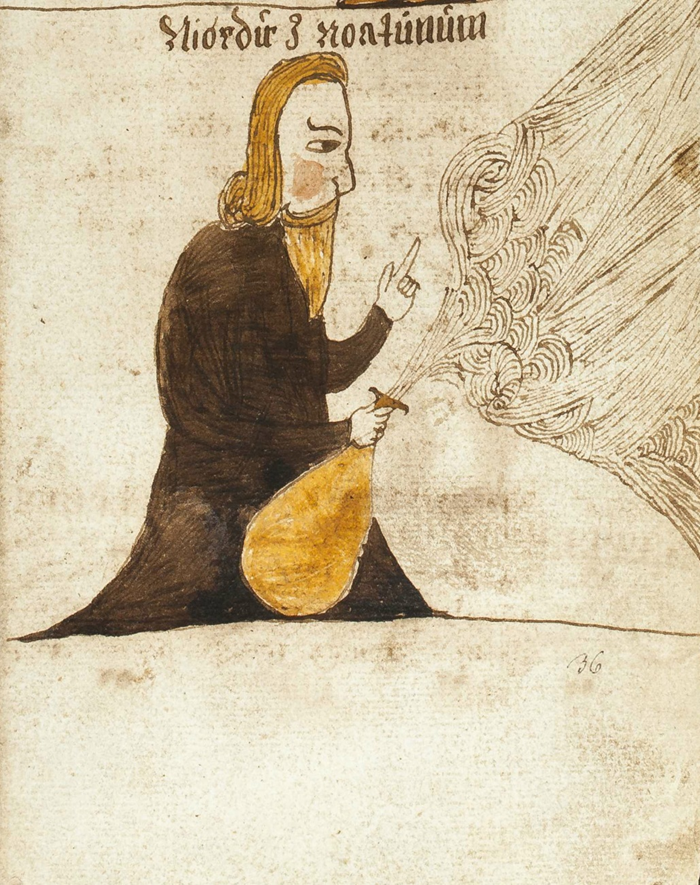 Niordúr J noatúnúm
36